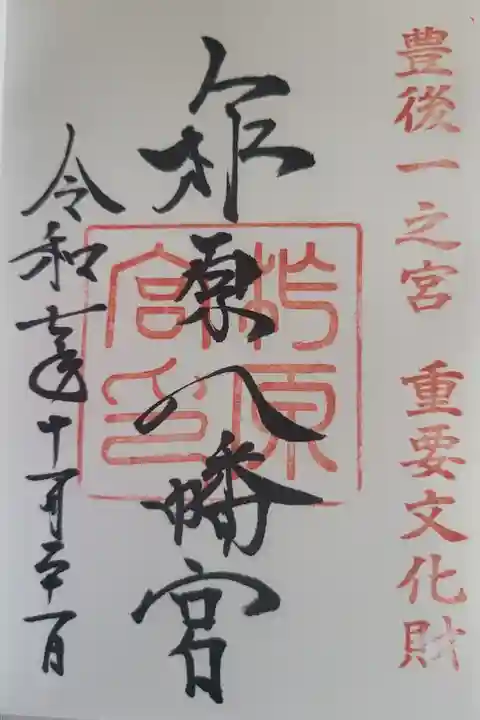 豊後一之宮 重要文化財
柞原八幡宮
柞原
宮印
令和七年十